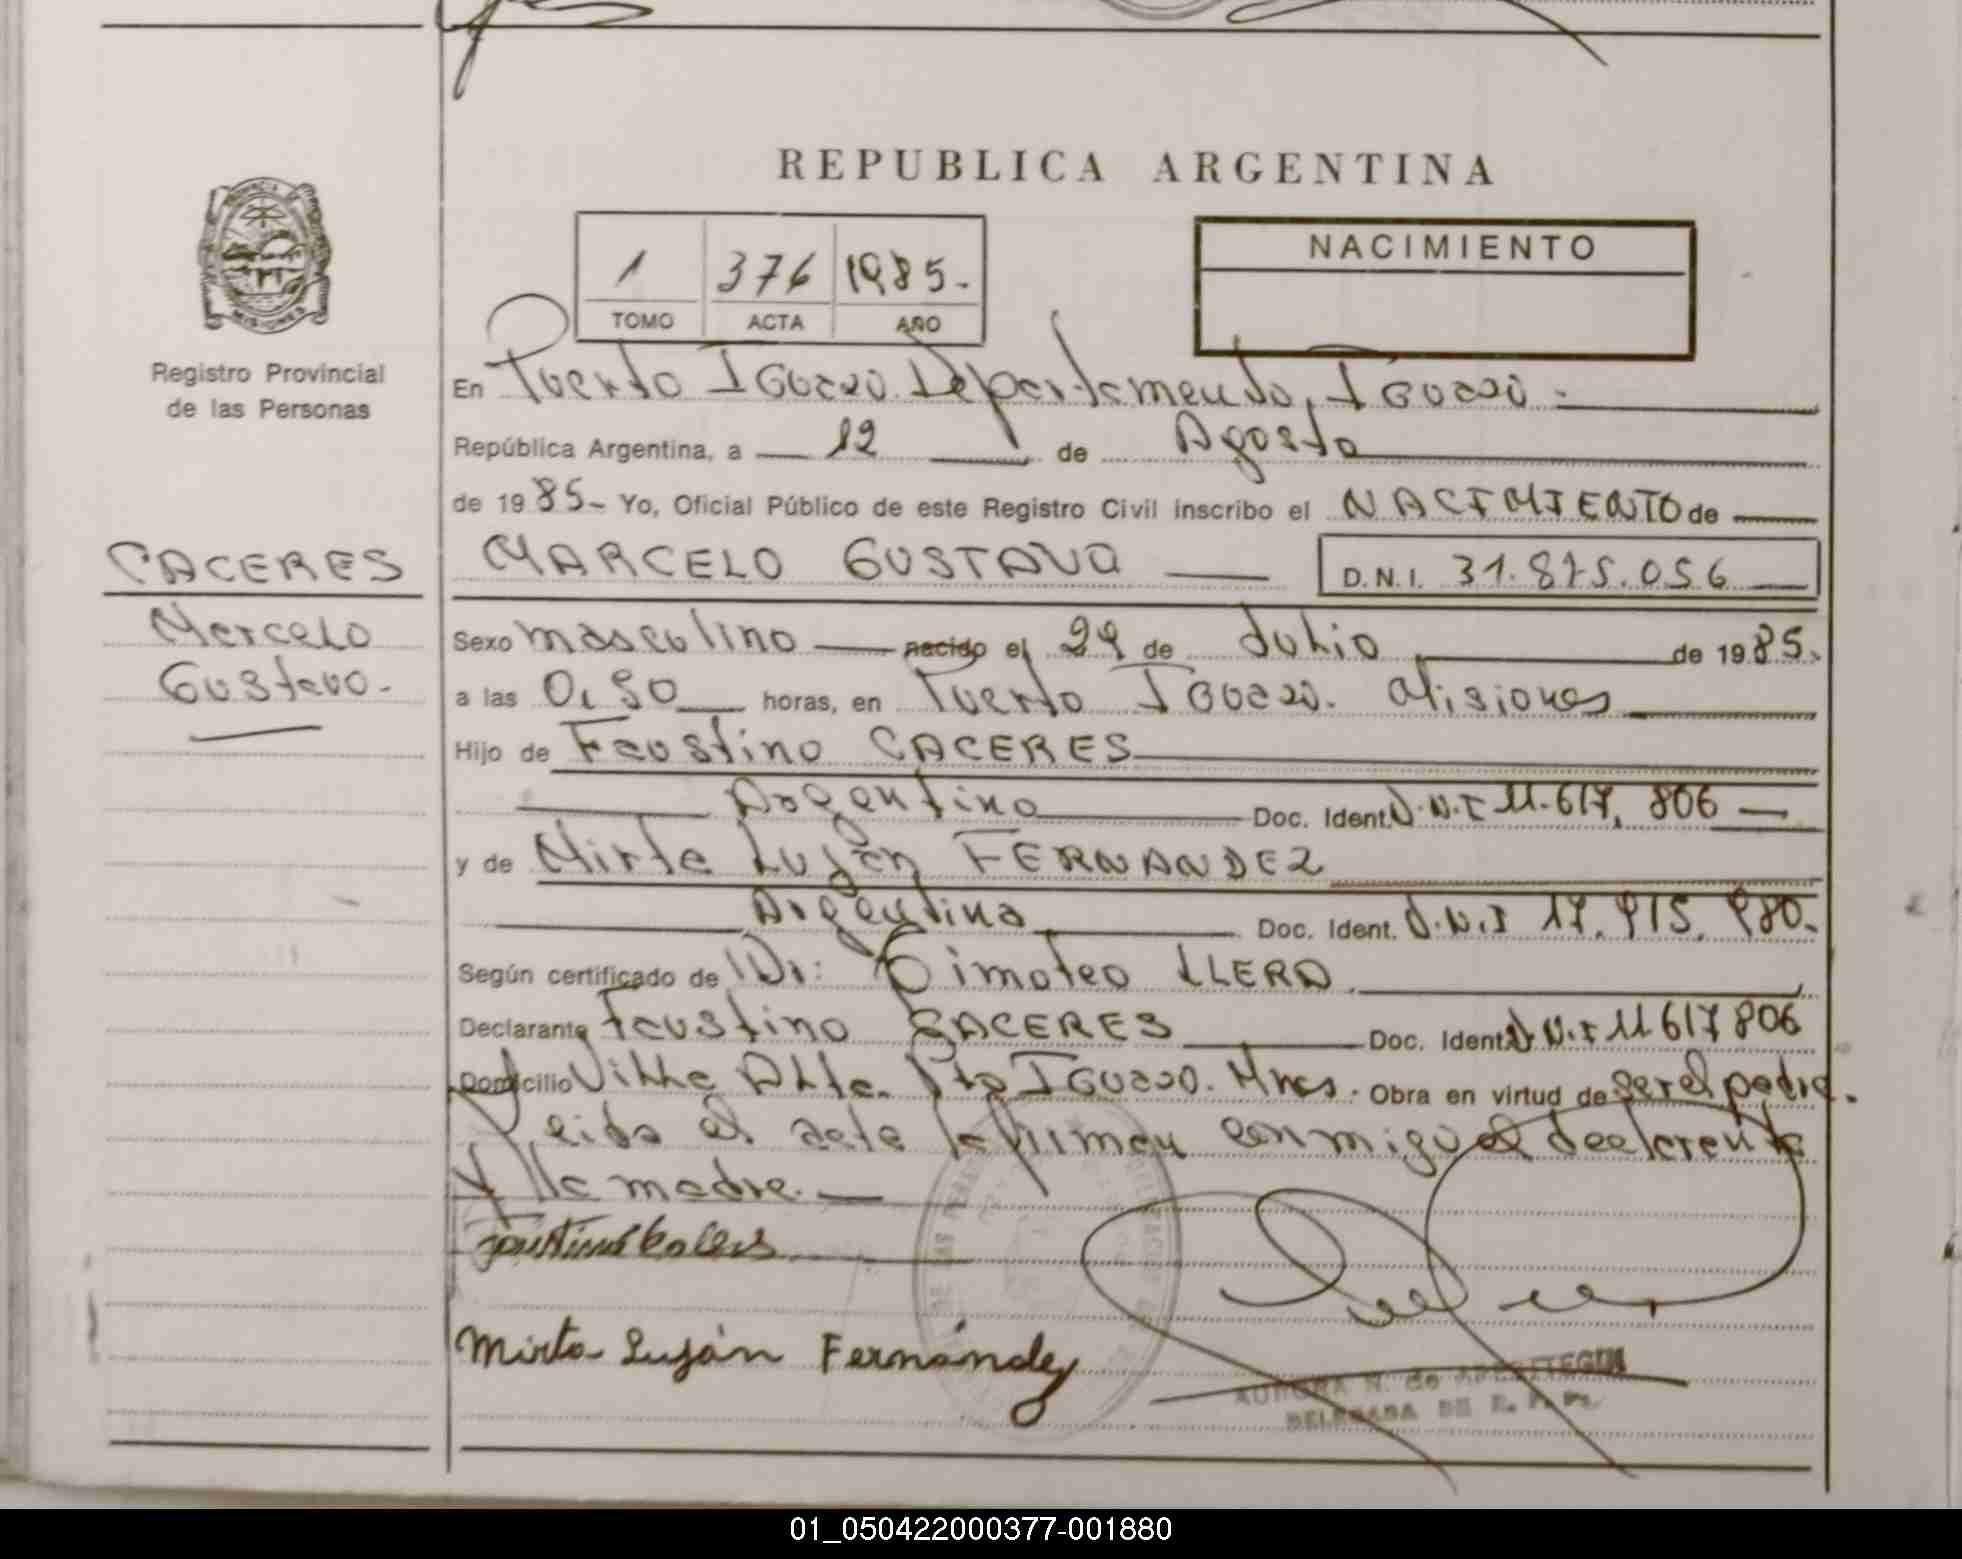 REPUBLICA ARGENTINA
PROVINCIA
MISIONES
Registro Provincial
de las Personas
1 376 1985.-
TOMO ACTA AÑO
NACIMIENTO
En Puerto IGUAZU. Departamento, IGUAZU.-
República Argentina, a 12 de Agosto
de 1985- Yo, Oficial Público de este Registro Civil inscribo el NACIMIENTO de
CACERES
Marcelo
Gustavo.-
MARCELO GUSTAVO D.N.I. 31.875.056
Sexo masculino nacido el 29 de Julio de 1985.
a las horas, en Puerto IGUAZU. Misiones
Hijo de Faustino CACERES
Argentino Doc. Ident. D.N.I 11.617.806
y de Mirta Luján FERNANDEZ
Argentina Doc. Ident. D.N.I 17.915.980.
Según certificado de Dr: Timoteo LLERA
Declarante Faustino CACERES Doc. Ident. D.N.I 11617806
Domicilio Villa Alta. Pto IGUAZU. Mnes. Obra en virtud de ser el padre.
Leida el acta la firman conmigo el declarante
y la madre.
Mirta Luján Fernández
AURORA N. de
DELEGADA DE R. P. Ps.
01_050422000377-001880